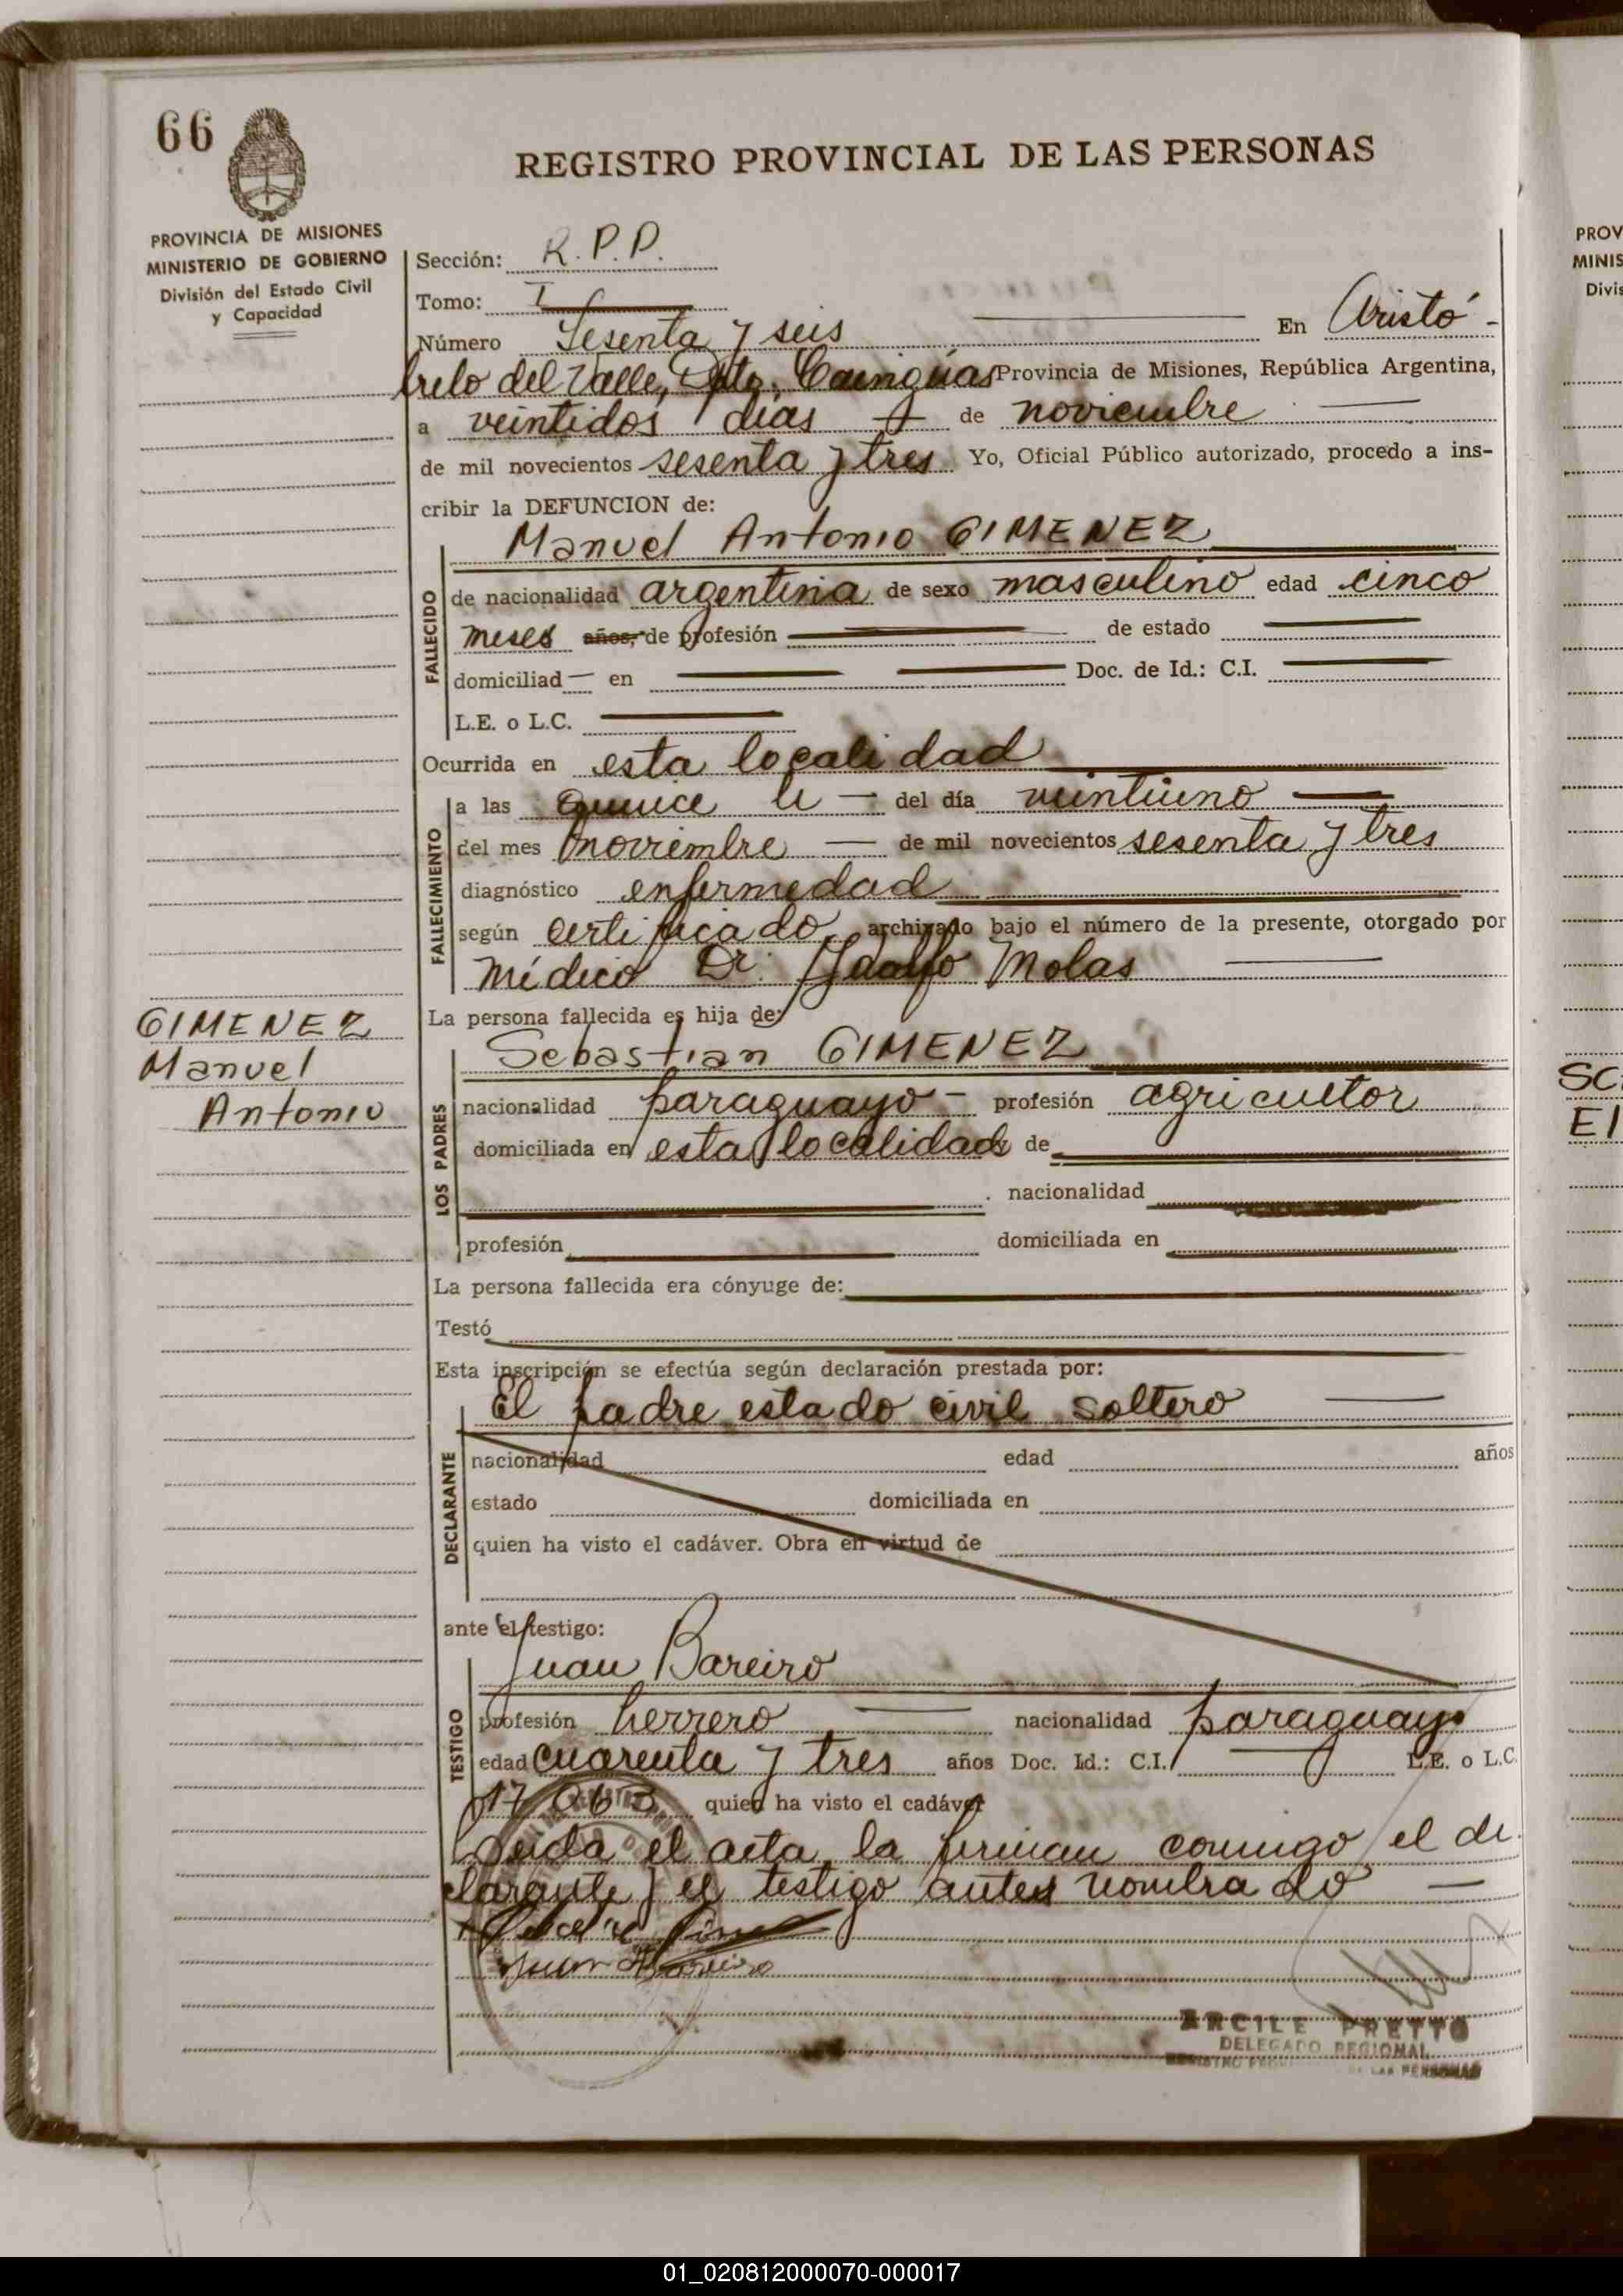 66
REGISTRO PROVINCIAL DE LAS PERSONAS
PROVINCIA DE MISIONES
MINISTERIO DE GOBIERNO
División del Estado Civil
y Capacidad
Sección: R.P.P.
Tomo: I
Número Sesenta y seis En Aristó-
bulo del Valle, Dpto. Cainguas Provincia de Misiones, República Argentina,
a veintidos días de noviembre
de mil novecientos sesenta y tres Yo, Oficial Público autorizado, procedo a ins-
cribir la DEFUNCION de:
Manuel Antonio GIMENEZ
FALLECIDO
de nacionalidad argentina de sexo masculino edad cinco
meses años, de profesión de estado
domiciliad en Doc. de Id.: C.I.
L.E. o L.C.
Ocurrida en esta localidad
FALLECIMIENTO
a las quince h del día veintiuno
del mes noviembre de mil novecientos sesenta y tres
diagnóstico enfermedad
según certificado archivado bajo el número de la presente, otorgado por
médico Dr. Molas
La persona fallecida es hija de:
GIMENEZ
Manuel
Antonio
LOS PADRES
Sebastian GIMENEZ
nacionalidad paraguayo profesión agricultor
domiciliada en esta localidad de
nacionalidad
profesión domiciliada en
La persona fallecida era cónyuge de:
Testó
Esta inscripción se efectúa según declaración prestada por:
El padre estado civil soltero
DECLARANTE
nacionalidad edad años
estado domiciliada en
quien ha visto el cadáver. Obra en virtud de
ante el testigo:
TESTIGO
Juan Bareiro
profesión herrero nacionalidad paraguayo
edad cuarenta y tres años Doc. Id.: C.I. L.E. o L.C.
quien ha visto el cadáver
Leida el acta la firman conmigo el de
clarante y el testigo antes nombrado
Juan Bareiro
ARCILE PRETTO
DELEGADO REGIONAL
LAS PERSONAS
PROV
MINIS
Divis
SC
EI
01_020812000070-000017